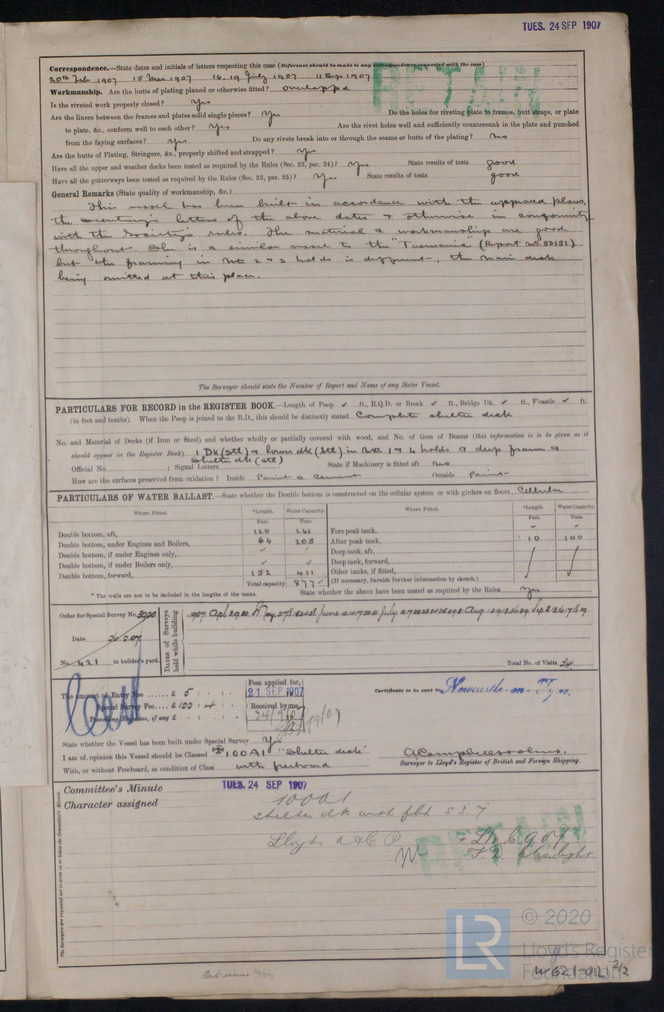 TUES. 24 SEP 1907
Correspondence.—State dates and initials of letters respecting this case (Reference should be made to any correspondence connected with the case)
20th Feb 1907 15 Mar 1907 16. 19 July 1907 11 Sep 1907
RETAIN
Workmanship. Are the butts of plating planed or otherwise fitted? overlapped
Is the riveted work properly closed? Yes
Are the liners between the frames and plates solid single pieces? Yes Do the holes for riveting plate to frames, butt straps, or plate
to plate, &c., conform well to each other? Yes Are the rivet holes well and sufficiently countersunk in the plate and punched
from the faying surfaces? Yes Do any rivets break into or through the seams or butts of the plating? No
Are the butts of Plating, Stringers, &c., properly shifted and strapped? Yes
Have all the upper and weather decks been tested as required by the Rules (Sec. 23, par. 24)? Yes State results of tests good
Have all the gutterways been tested as required by the Rules (Sec. 23, par. 25)? Yes State results of tests good
General Remarks (State quality of workmanship, &c.)
This vessel has been built in accordance with the approved plans,
the Secretary's letters of the above dates & otherwise in conformity
with the Society's rules. The material & workmanship are good
throughout. She is a similar vessel to the "Tasmania" (Report No. 52151)
but the framing in Nos 2 & 3 holds is different, the main deck
being omitted at this place.
The Surveyor should state the Number of Report and Name of any Sister Vessel.
PARTICULARS FOR RECORD in the REGISTER BOOK.—Length of Poop ✓ ft., R.Q.D. or Break ✓ ft., Bridge Dk. ✓ ft., Foc'stle ✓ ft.
(in feet and tenths). When the Poop is joined to the B.D., this should be distinctly stated Complete shelter deck
No. and Material of Decks (if Iron or Steel) and whether wholly or partially covered with wood, and No. of tiers of Beams (this information is to be given as it
should appear in the Register Book). 1 Dk (stl) & lower dk (stl) in Nos 1 & 4 holds & deep frames &
shelter dk (stl)
Official No. ; Signal Letters State if Machinery is fitted aft no
How are the surfaces preserved from oxidation? Inside Paint & cement Outside Paint
PARTICULARS OF WATER BALLAST.—State whether the Double bottom is constructed on the cellular system or with girders on floors Cellular
Where Fitted. *Length. Water Capacity. Where Fitted. *Length. Water Capacity.
Feet. Tons. Feet. Tons.
Double bottom, aft, 120 261 Fore peak tank, ✓ ✓
Double bottom, under Engines and Boilers, 64 205 After peak tank, 10 100
Double bottom, if under Engines only, ✓ ✓ Deep tank, aft,
Double bottom, if under Boilers only, ✓ ✓ Deep tank, forward,
Double bottom, forward, 152 411 Other tanks, if fitted,
Total capacity 877 (If necessary, furnish further information by sketch.)
* The walls are not to be included in the lengths of the tanks. State whether the above have been tested as required by the Rules Yes
Order for Special Survey No. 3920
Date 26.2.07
No. 421 in builder's yard.
DATES of Surveys held while building
Total No. of Visits
The amount of Entry Fee ...... £ 5
Fees applied for, 21 SEP 1907
Certificate to be sent to Newcastle-on-Tyne.
Special Survey Fee.... £
Received by me,
Travelling Expenses, if any £
State whether the Vessel has been built under Special Survey Yes
I am of opinion this Vessel should be Classed 100A1 "Shelter deck"
With, or without Freeboard, as condition of Class with freeboard
Surveyor to Lloyd's Register of British and Foreign Shipping.
Committee's Minute TUES. 24 SEP 1907
Character assigned 100A1
shelter dk with fbd
Lloyds A & C P
+ LMC 9.07
RETAIN
The Surveyors are requested not to write on or below the Committee's Minute.
LR © 2020
Lloyd's Register
Foundation
W621-0212/2